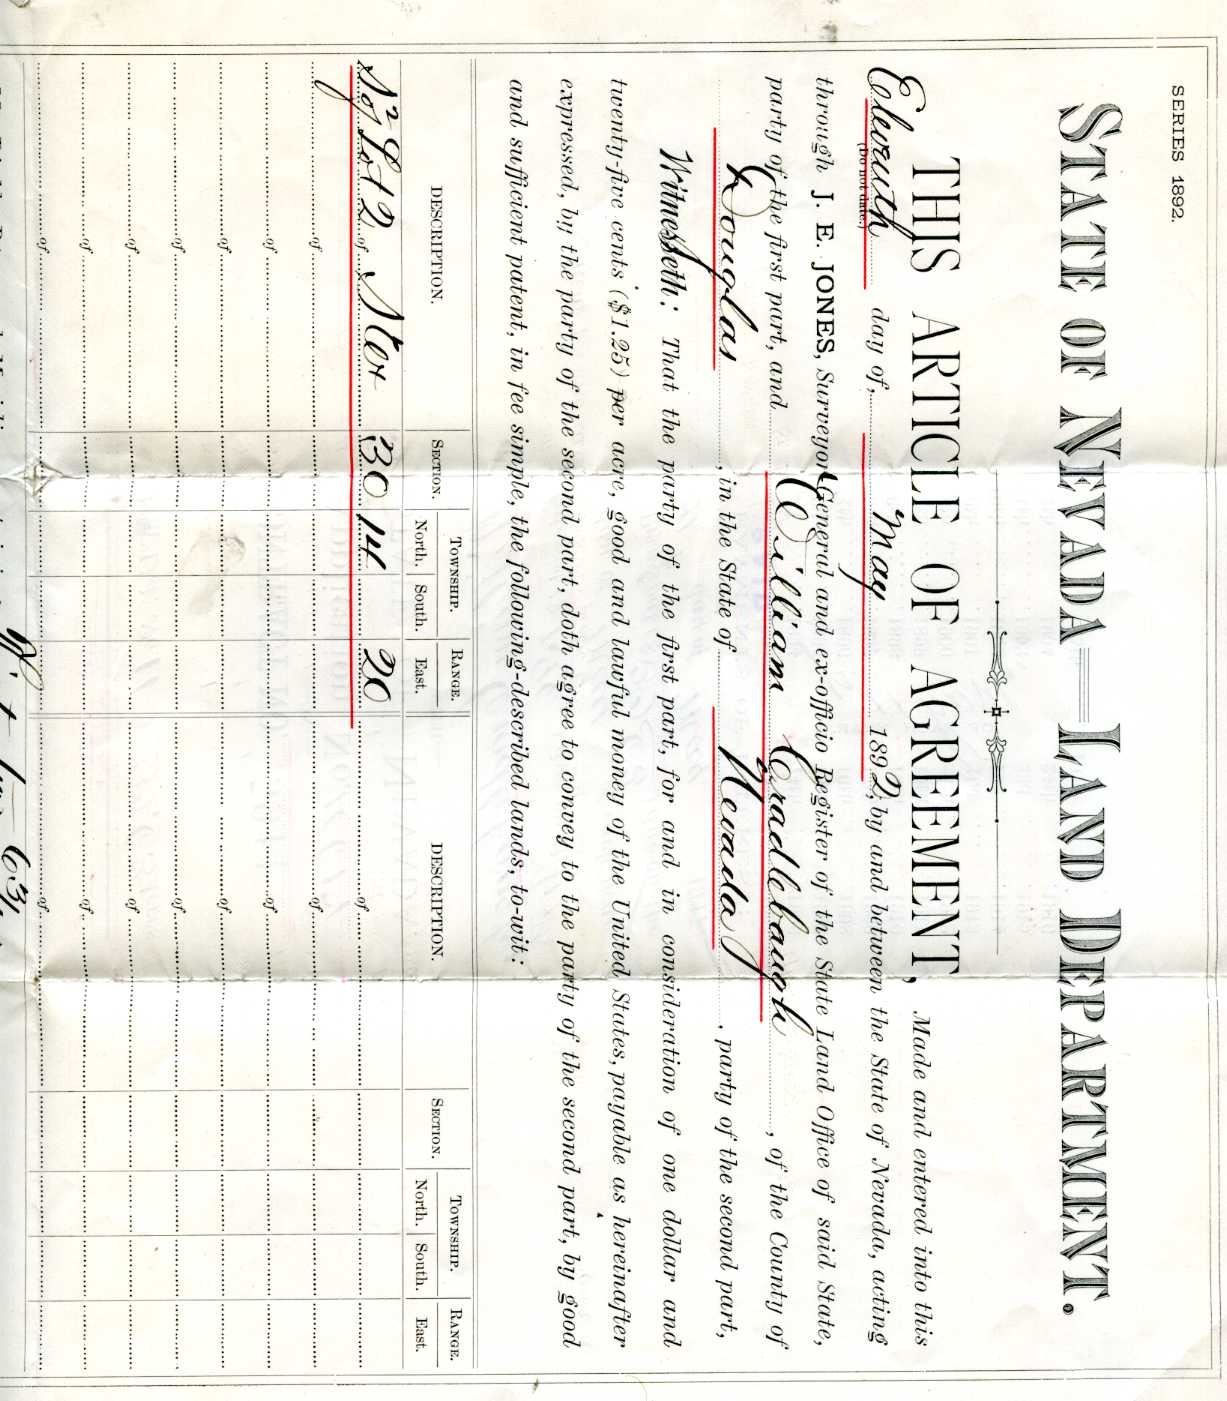 SERIES 1892.
STATE OF NEVADA — LAND DEPARTMENT.
THIS ARTICLE OF AGREEMENT, Made and entered into this
Eleventh day of, May 1892, by and between the State of Nevada, acting
(Do not date.)
through J. E. JONES, Surveyor General and ex-officio Register of the State Land Office of said State,
party of the first part, and William Cradlebaugh, of the County of
Douglas, in the State of Nevada, party of the second part,
Witnesseth: That the party of the first part, for and in consideration of one dollar and
twenty-five cents ($1.25) per acre, good and lawful money of the United States, payable as hereinafter
expressed, by the party of the second part, doth agree to convey to the party of the second part, by good
and sufficient patent, in fee simple, the following-described lands, to-wit:
DESCRIPTION. SECTION. TOWNSHIP. RANGE. DESCRIPTION. SECTION. TOWNSHIP. RANGE.
North. South. East. North. South. East.
S2 of Lot 2 of N.W. 30 14 20 of
of of
of of
of of
of of
of of
of of
of of